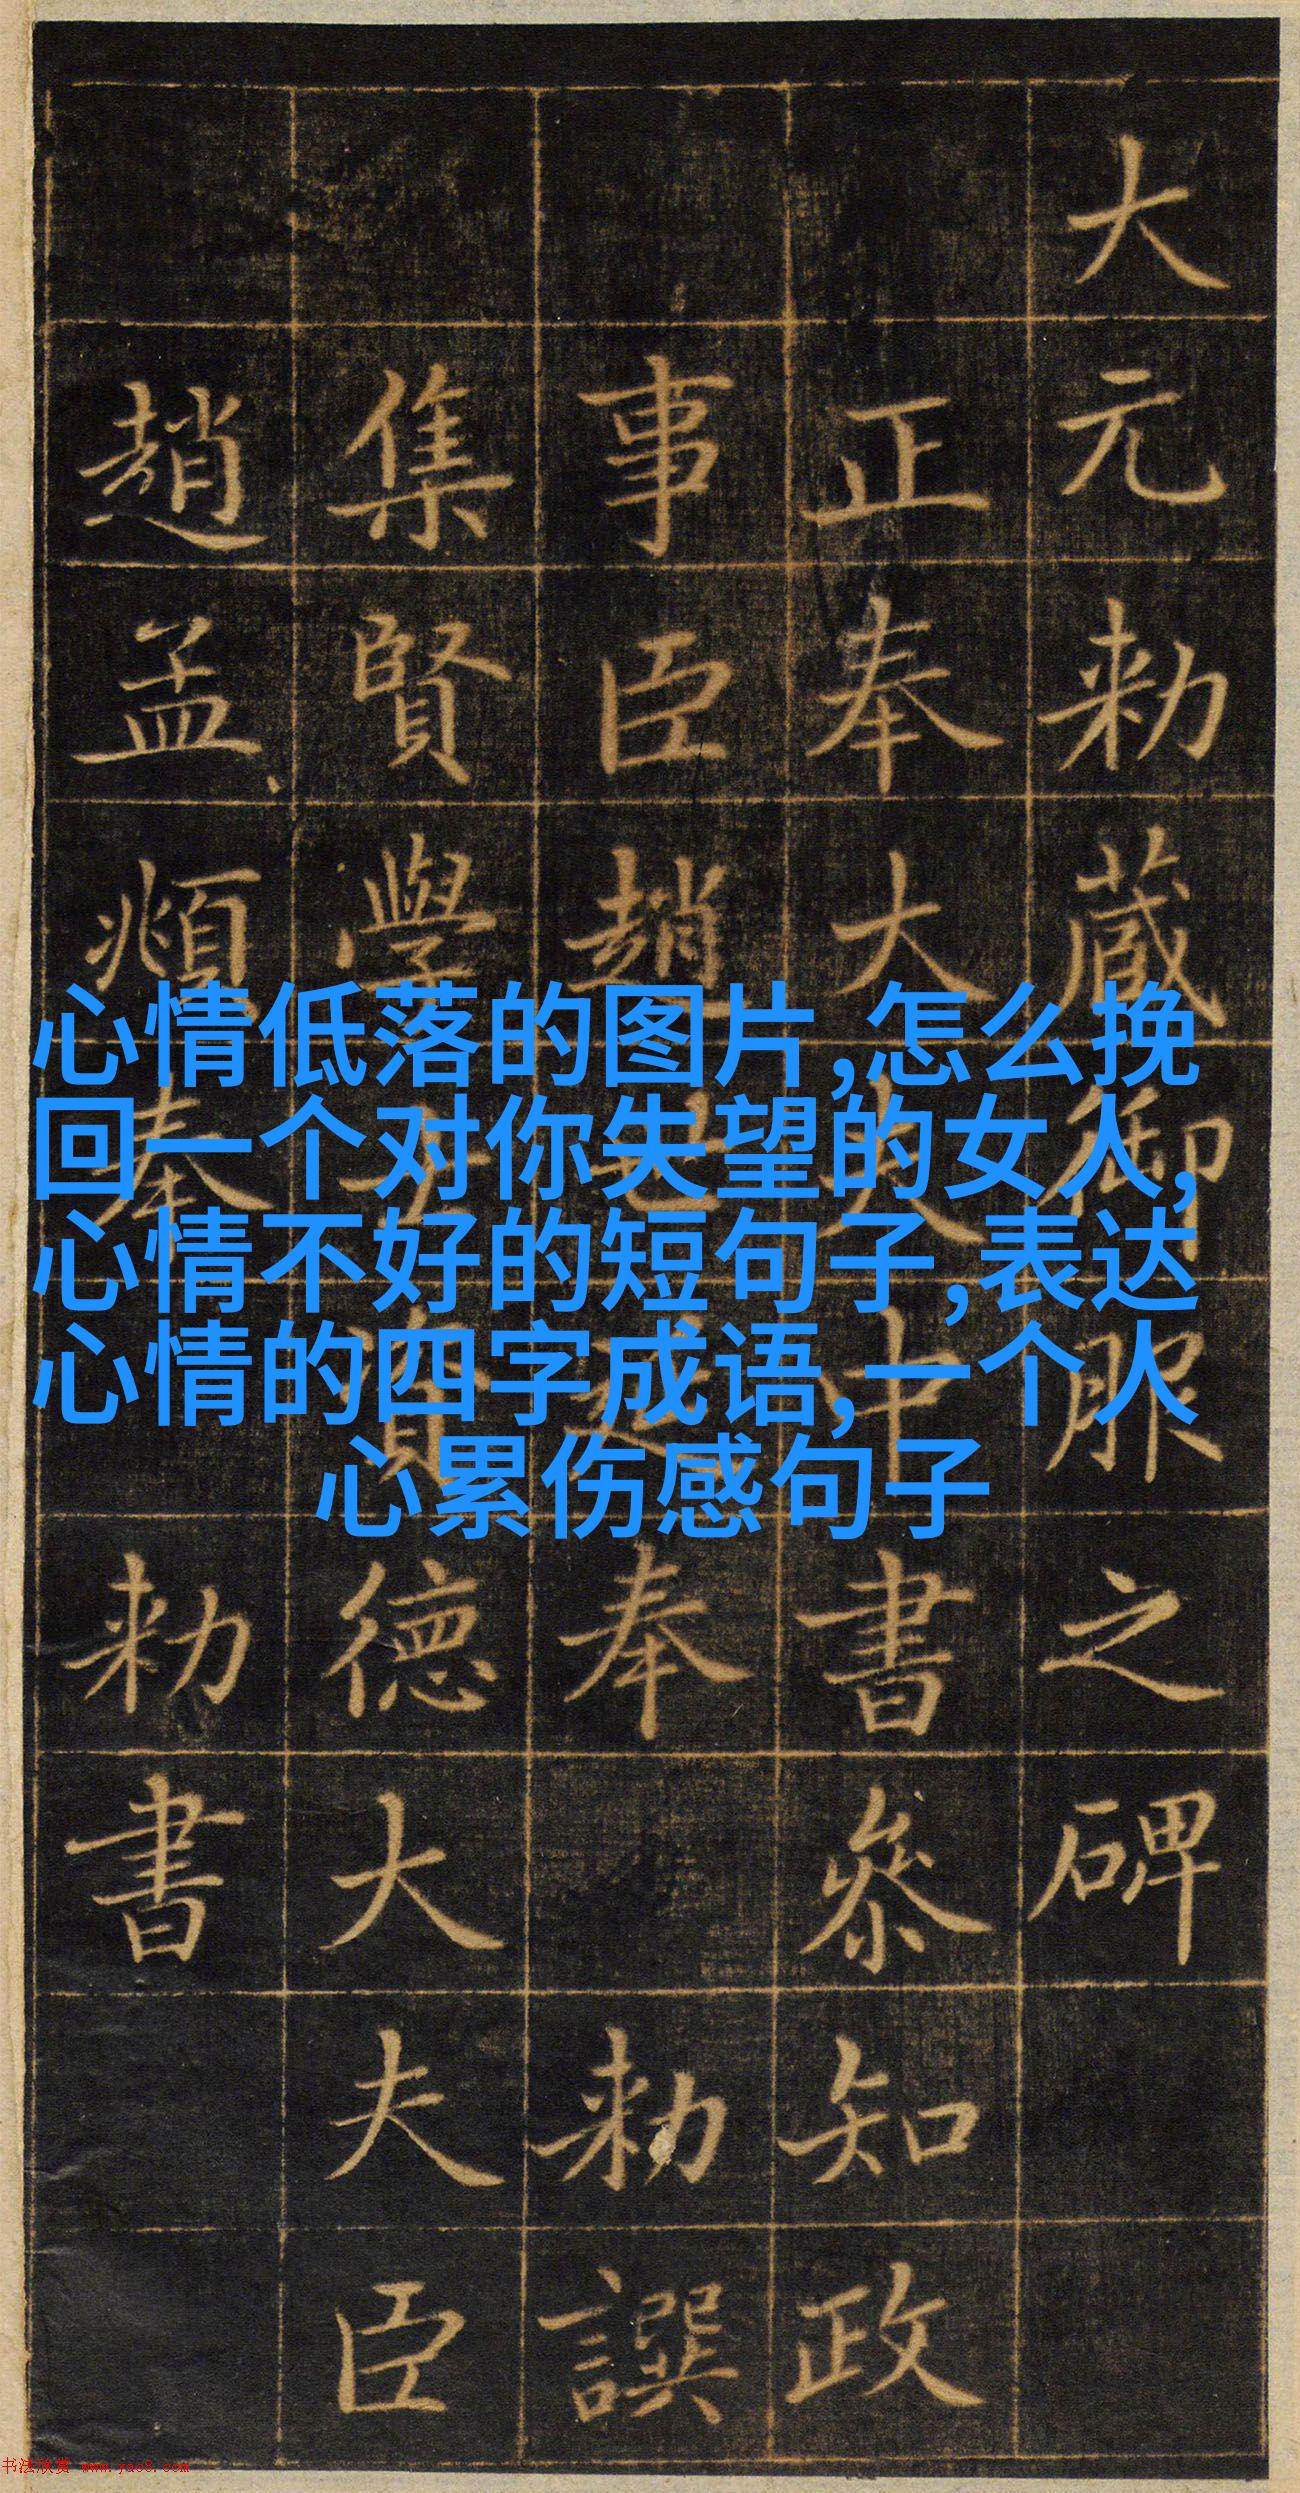 大元勑藏御服之碑
正奉大夫中書叅知政
事臣趙世延奉勑譔
集賢學士資德大夫臣
趙孟頫奉勑書
心情低落的图片,怎么挽
回一个对你失望的女人,
心情不好的短句子,表达
心情的四字成语,一个人
心累伤感句子
书法欣赏 www.yac8.com